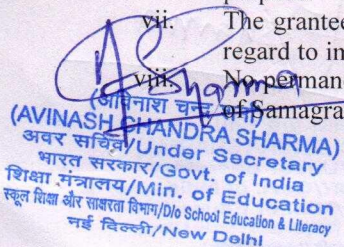 vii. The grantee
regard to in
viii. No perman
of Samagra
Sharma
(अविनाश चन्द्र
(AVINASH CHANDRA SHARMA)
अवर सचिव/Under Secretary
भारत सरकार/Govt. of India
शिक्षा मंत्रालय/Min. of Education
स्कूल शिक्षा और साक्षरता विभाग/D/o School Education & Literacy
नई दिल्ली/New Delhi